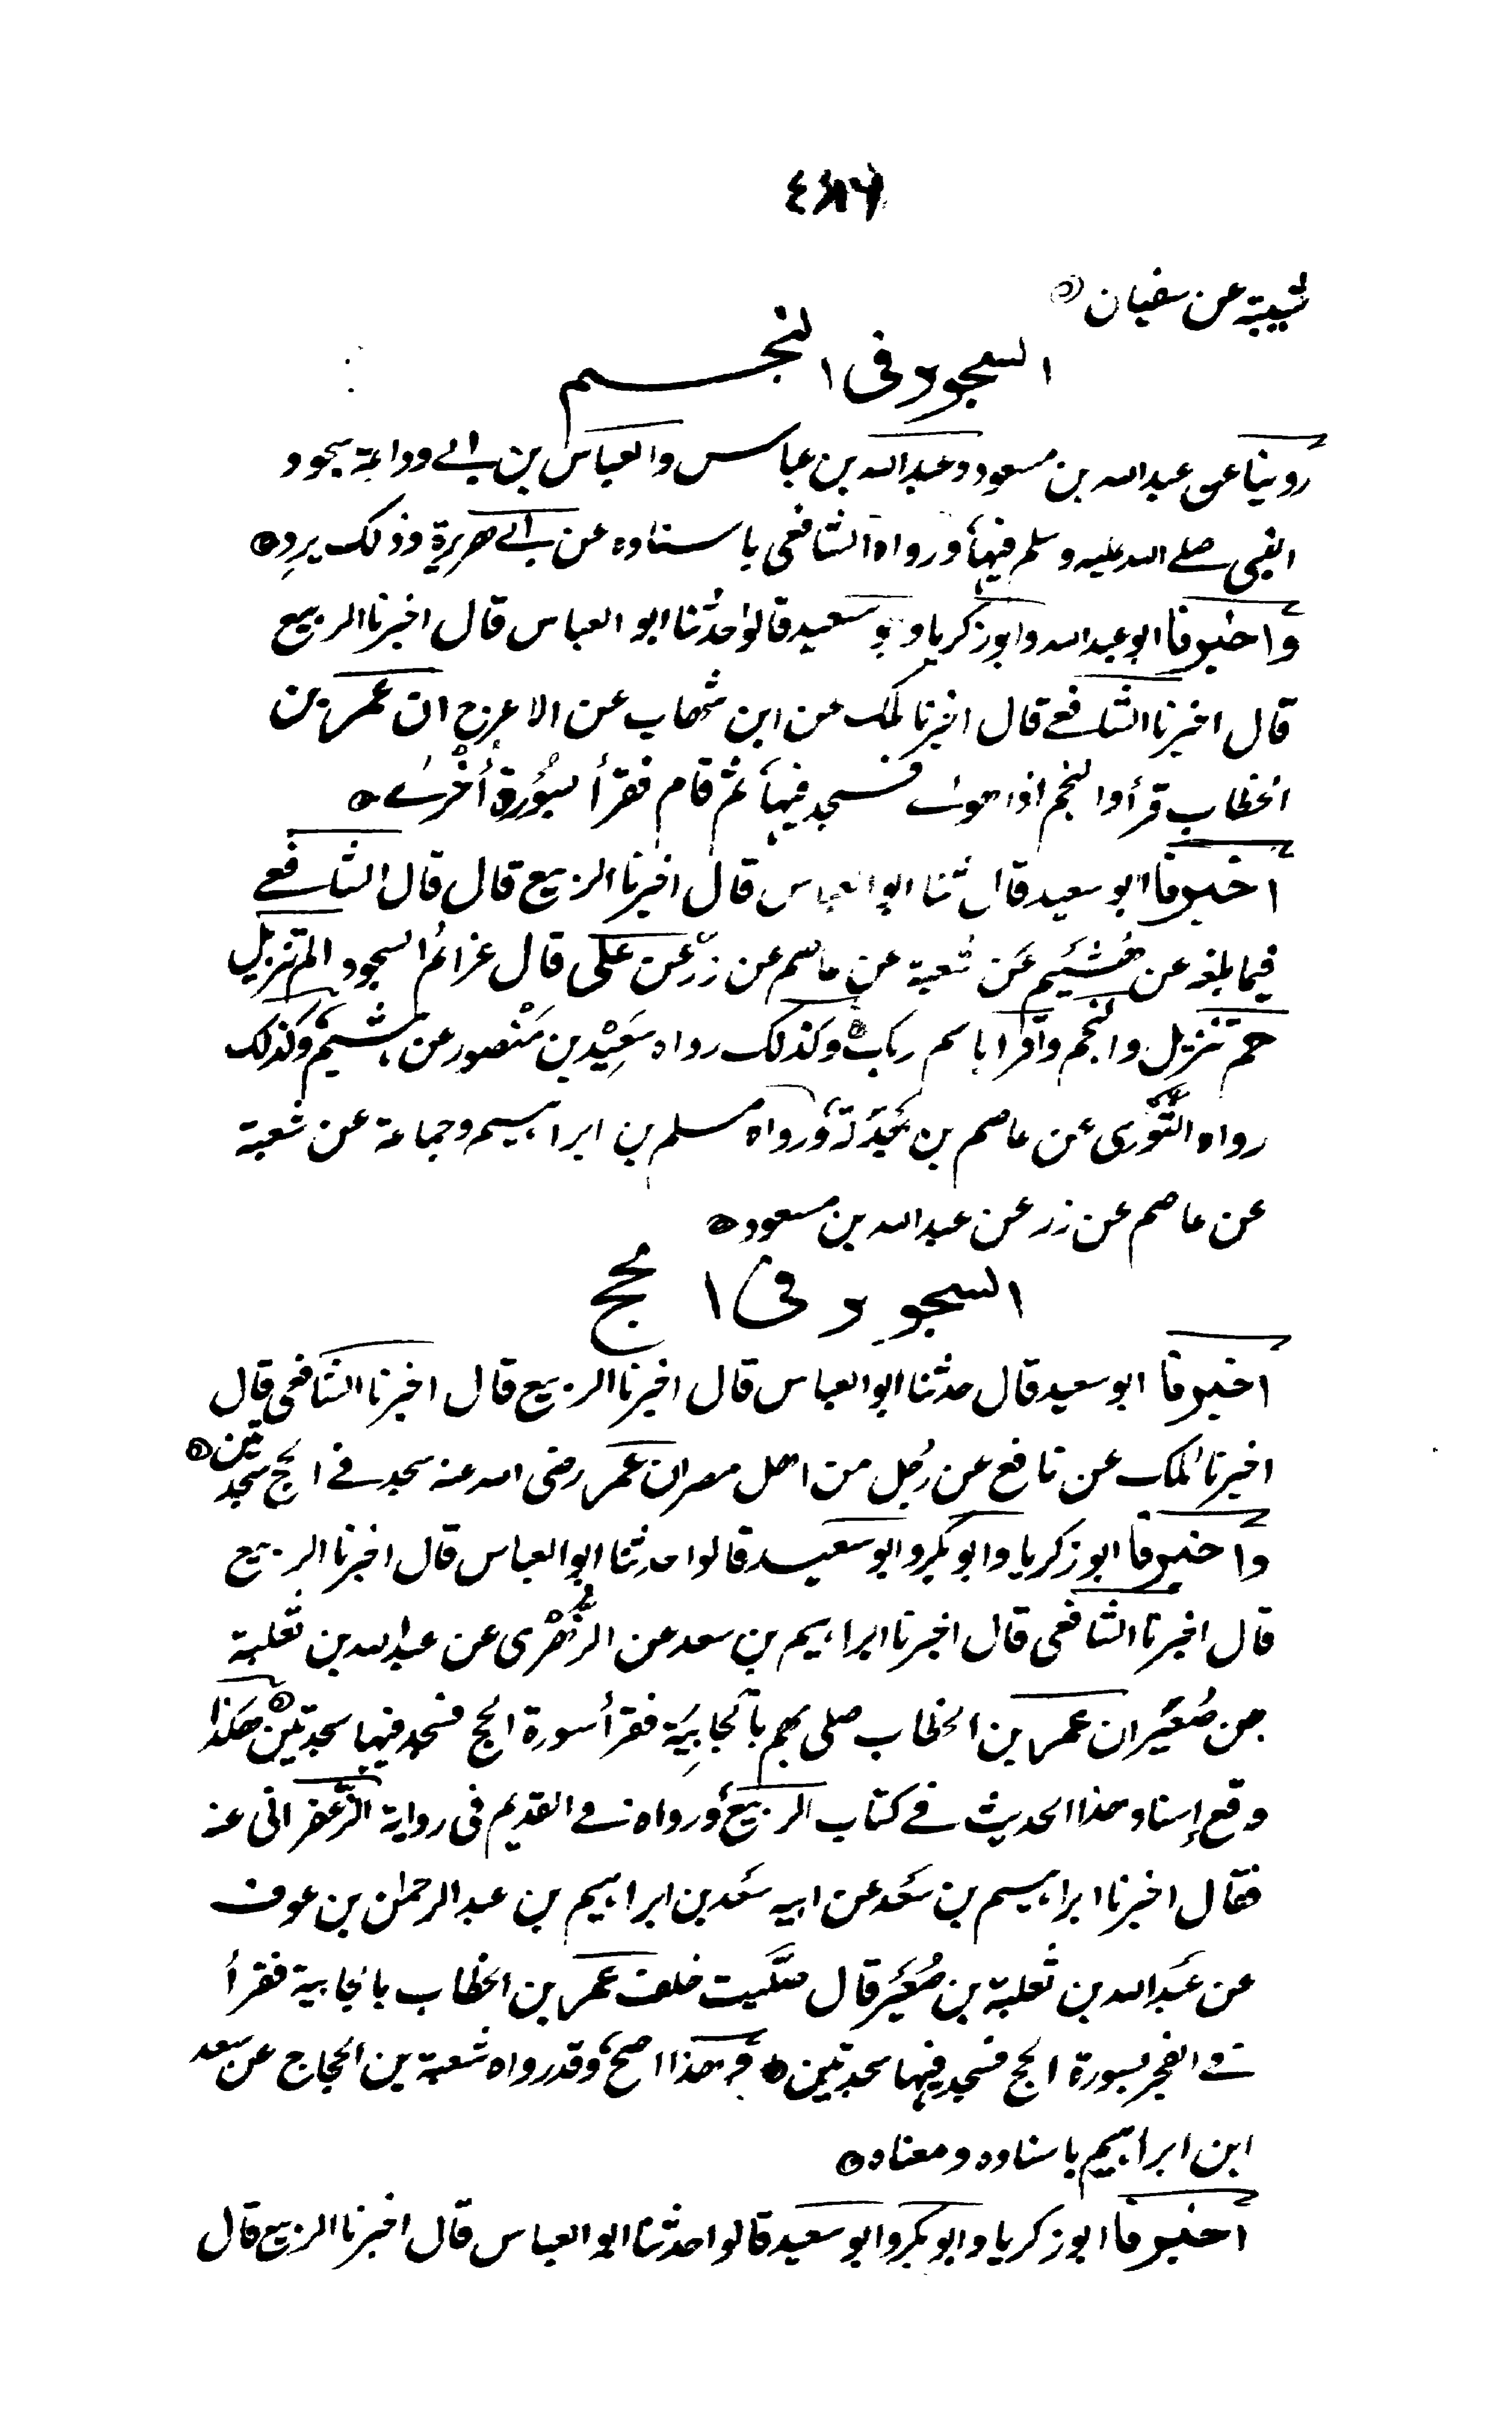 شيبة عن سفيان
السجود في النجم
روينا عن عبدالله بن مسعود وعبدالله بن عباس والعباس بن ابي وداعة سجود
النبى صلى الله عليه وسلم فيها ورواه الشافعى باسناده عن ابى هريرة وذلك يرد
واخبرنا ابو عبدالله وابو زكريا وابو سعيد قالوا حدثنا ابو العباس قال اخبرنا الربيع
قال اخبرنا الشافعي قال اخبرنا ملك عن ابن شهاب عن الاعرج ان عمر بن
الخطاب قرأ والنجم اذا هوى فسجد فيها ثم قام فقرأ بسُورة أُخْرى
اخبرنا ابو سعيد قال ثنا ابو العباس قال اخبرنا الربيع قال قال الشافعي
فيما بلغه عن هُشَيم عَن شعبة عن عاصم عن زر عن على قال عزائم السجود الم تنزيل
حم تنزيل والنجم واقرا باسم ربك وكذلك رواه سَعِيْد بن مَنْصور عن هشيم وكذلك
رواه الثَّوْرى عن عاصم بن بهدلة ورواه مسلم بن ابراهيم وجماعة عن شعبة
عن عاصم عن زر عن عبدالله بن مسعود
السجود في الحج
اخبرنا ابو سعيد قال حدثنا ابو العباس قال اخبرنا الربيع قال اخبرنا الشافعى قال
اخبرنا ملك عن نافع عن رجُل من اهل مصر ان عمر رضى الله عنه سجد في الحج سجدتين
واخبرنا ابو زكريا وابو بكر وابو سعيد قالوا حدثنا ابو العباس قال اخبرنا الربيع
قال اخبرنا الشافعى قال اخبرنا ابراهيم بن سعد عن الزُّهْرى عن عبدالله بن ثعلبة
بن صُعَيْر ان عمر بن الخطاب صلى بهم بالجابِيَة فقرأ سورة الحج فسجد فيها سجدتين هكذا
وقع إسناد هذا الحديث في كتاب الربيع ورواه في القديم فى رواية الزَّعفرانى عنه
فقال اخبرنا ابراهيم بن سَعد عن ابيه سَعد بن ابراهيم بن عبدالرحمن بن عوف
عن عَبدالله بن ثعلبة بن صُعَيْر قال صلَّيت خلف عمر بن الخطاب بالجابية فقرأ
في الفجر بسورة الحج فسجد فيها سجدتين وهذا اصح وقد رواه شعبة بن الحجاج عن سعد
ابن ابراهيم باسناده ومعناه
اخبرنا ابو زكريا وابو بكر وابو سعيد قالوا حدثنا ابو العباس قال اخبرنا الربيع قال